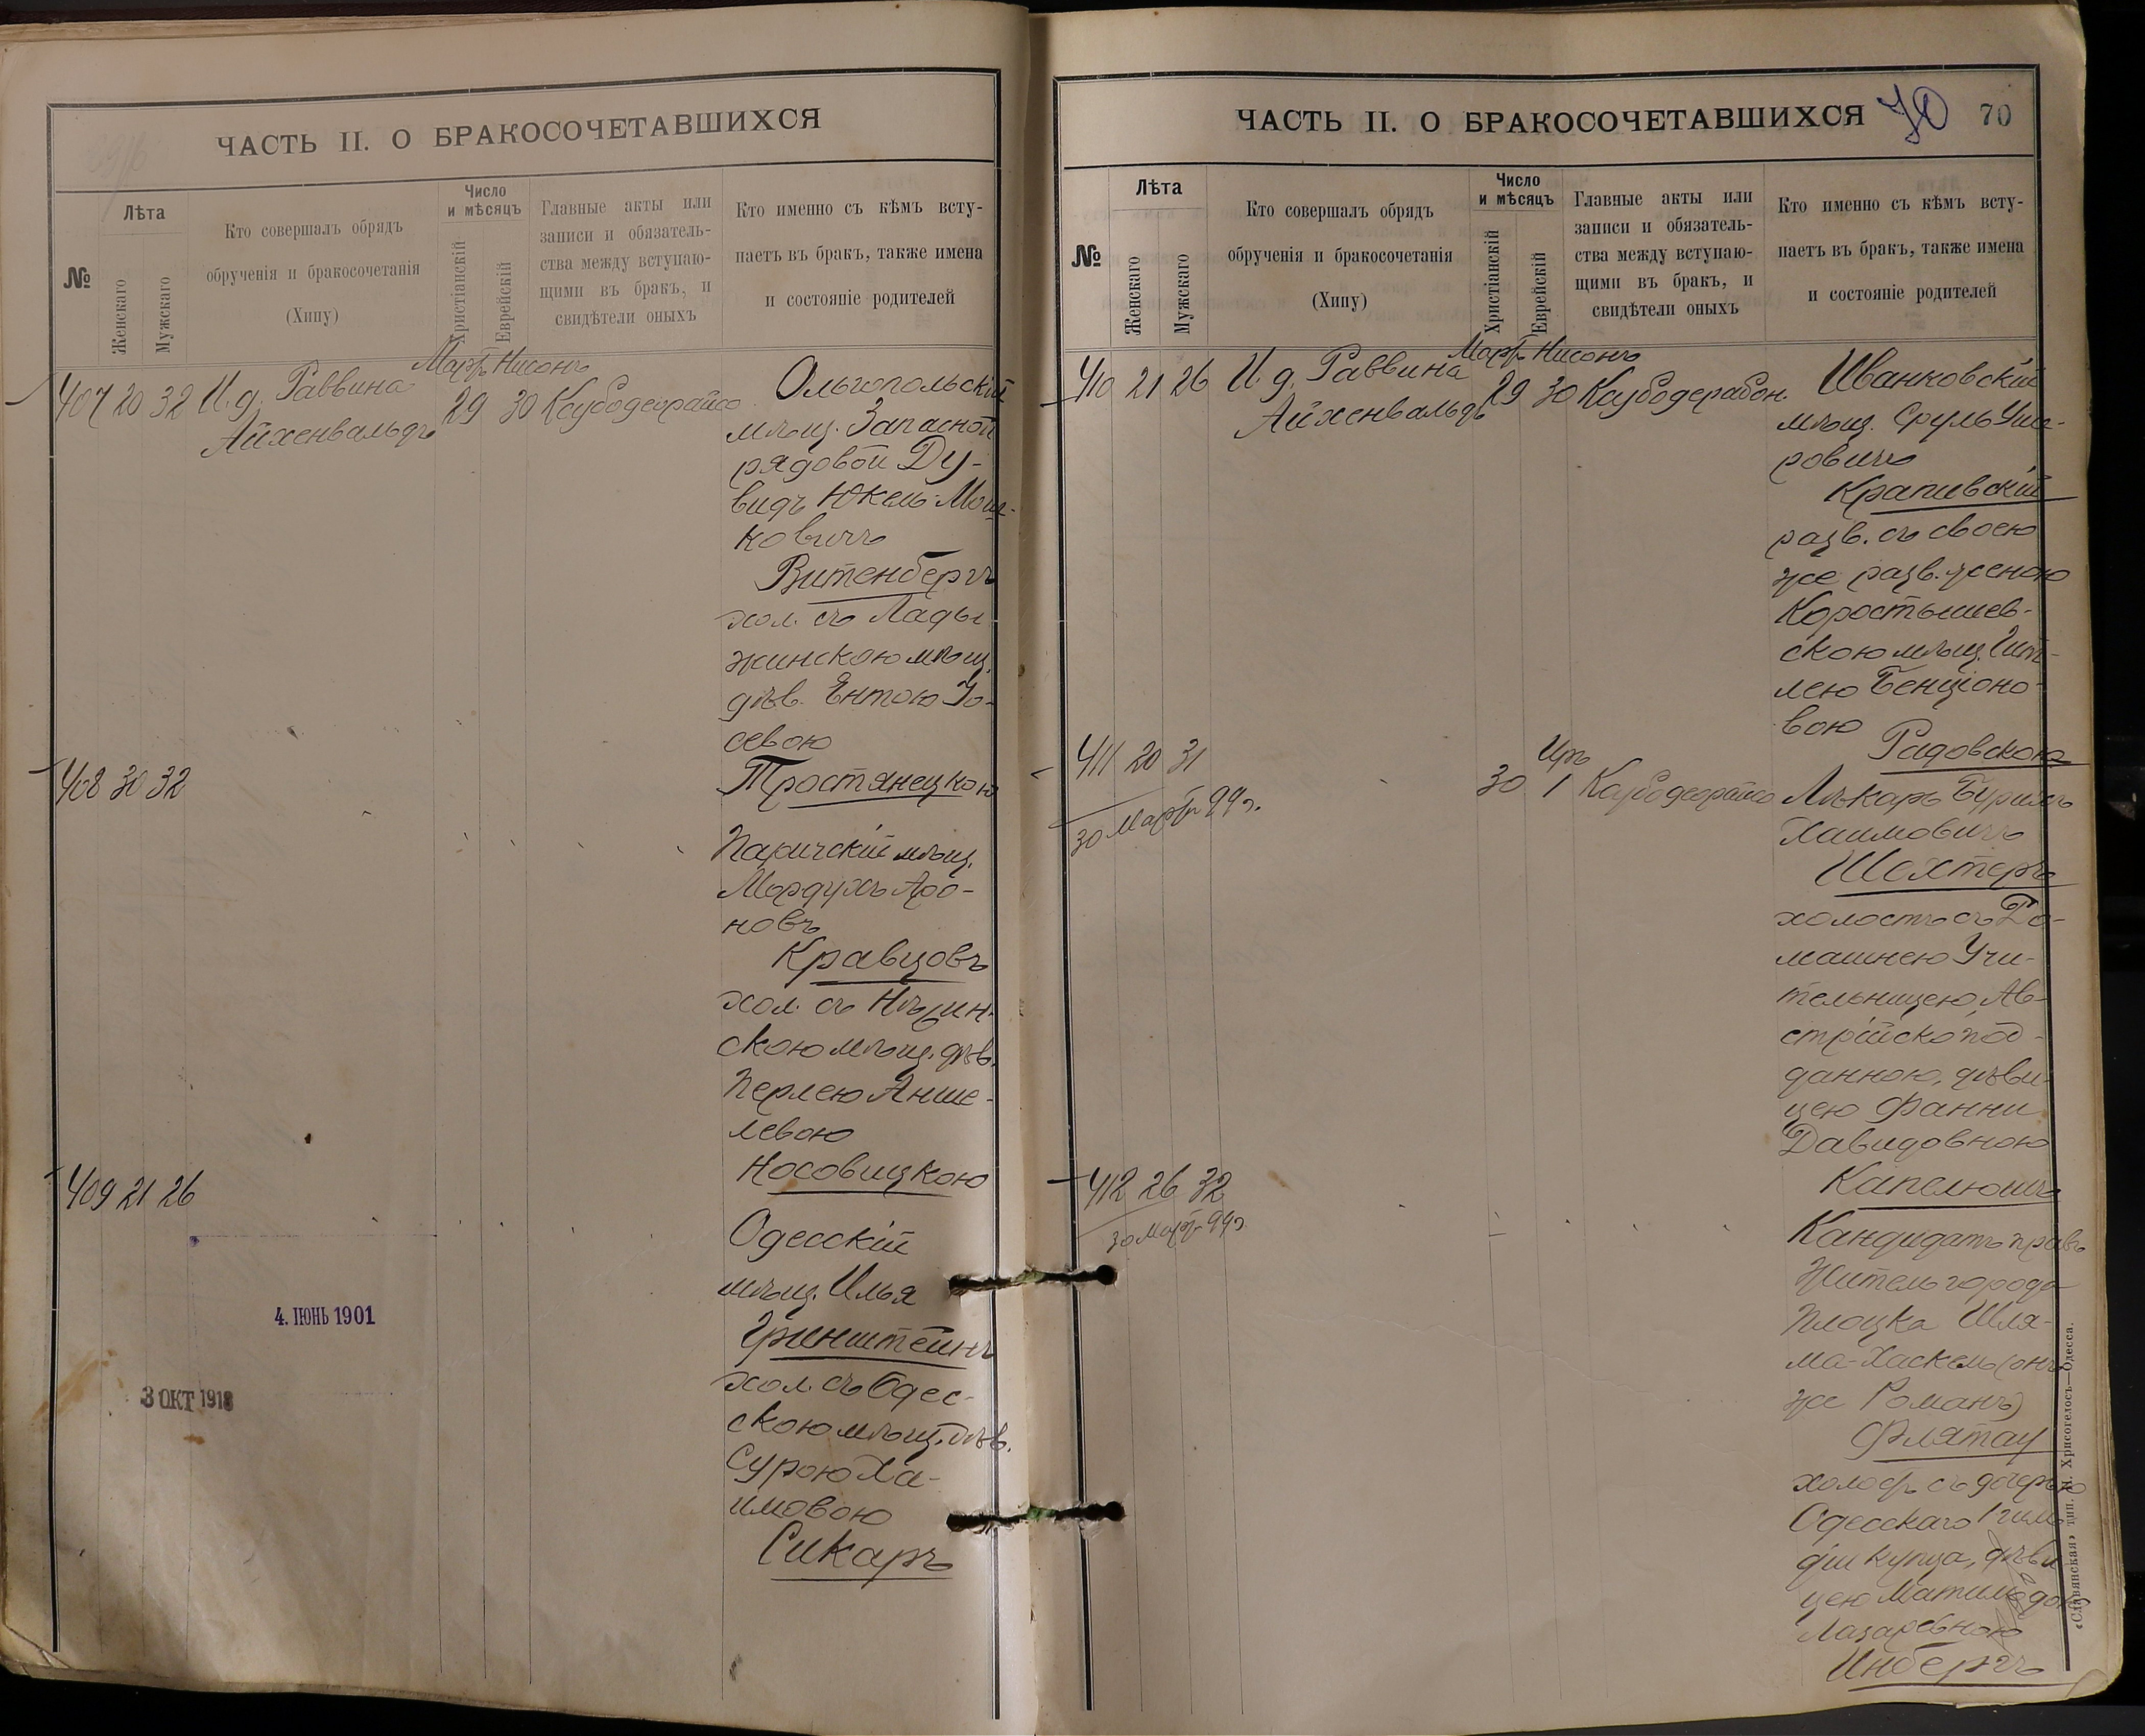 ЧАСТЬ II. О БРАКОСОЧЕТАВШИХСЯ
№
Лѣта
Женскаго
Мужскаго
Кто совершалъ обрядъ
обрученія и бракосочетанія
(Хипу)
Число
и мѣсяцъ
Христіанскій
Еврейскій
Главные акты или
записи и обязатель-
ства между вступаю-
щими въ бракъ, и
свидѣтели оныхъ
Кто именно съ кѣмъ всту-
паетъ въ бракъ, также имена
и состояніе родителей
Март. Нисонъ
407 20 32 И. д. Раввина
Айхенвальдъ
29 30
Ольгопольскій
мѣщ. Запасной
рядовой Ду-
видъ Юкель Мош-
ковичъ
Витенбергъ
хол. съ Лады
жинскою мѣщ.
дѣв. Ентою Іо-
севою
Тростянецкою
408 30 32
Паричскій мѣщ.
Мордухъ Аро-
новъ
Кравцовъ
хол. съ Нѣжин-
скою мѣщ. дѣв.
Перлею Анше-
левою
Носовицкою
409 21 26
Одесскій
мѣщ. Илья
Гринштейнъ
хол. съ Одес-
скою мѣщ. дѣв.
Сурою Ха-
имовою
Сикаръ
4. ІЮНЬ 1901
3 ОКТ 1918
ЧАСТЬ II. О БРАКОСОЧЕТАВШИХСЯ
70 70
№
Лѣта
Женскаго
Мужскаго
Кто совершалъ обрядъ
обрученія и бракосочетанія
(Хипу)
Число
и мѣсяцъ
Христіанскій
Еврейскій
Главные акты или
записи и обязатель-
ства между вступаю-
щими въ бракъ, и
свидѣтели оныхъ
Кто именно съ кѣмъ всту-
паетъ въ бракъ, также имена
и состояніе родителей
Март. Нисонъ
410 21 26 И. д. Раввина
Айхенвальдъ
29 30
Иванковскій
мѣщ. Сруль Уше-
ровичъ
Крапивскій
разв. съ своею
же разв. женою
Коростышев-
скою мѣщ. Гит-
лею Бенціоно-
вою
Радовскою
411 20 31
30 Март. 99 г.
Иръ
30 1
Лѣкарь Бурихъ
Хаимовичъ
Шехтеръ
холостъ съ До-
машнею Учи-
тельницею, Ав-
стрійско под-
данною, дѣви-
цею Фанни
Давидовною
Капелюшъ
412 26 32
30 Март. 99 г.
Кандидатъ правъ
Житель города
Плоцка Шля-
ма-Хаскель (онъ
же Романъ)
Флятау
холост. съ дочерью
Одесскаго 1 гиль
діи купца, дѣви
цею Матильдою
Лазаревною
Инбергъ
«Славянская» тип. Н. Хрисогелосъ—Одесса.